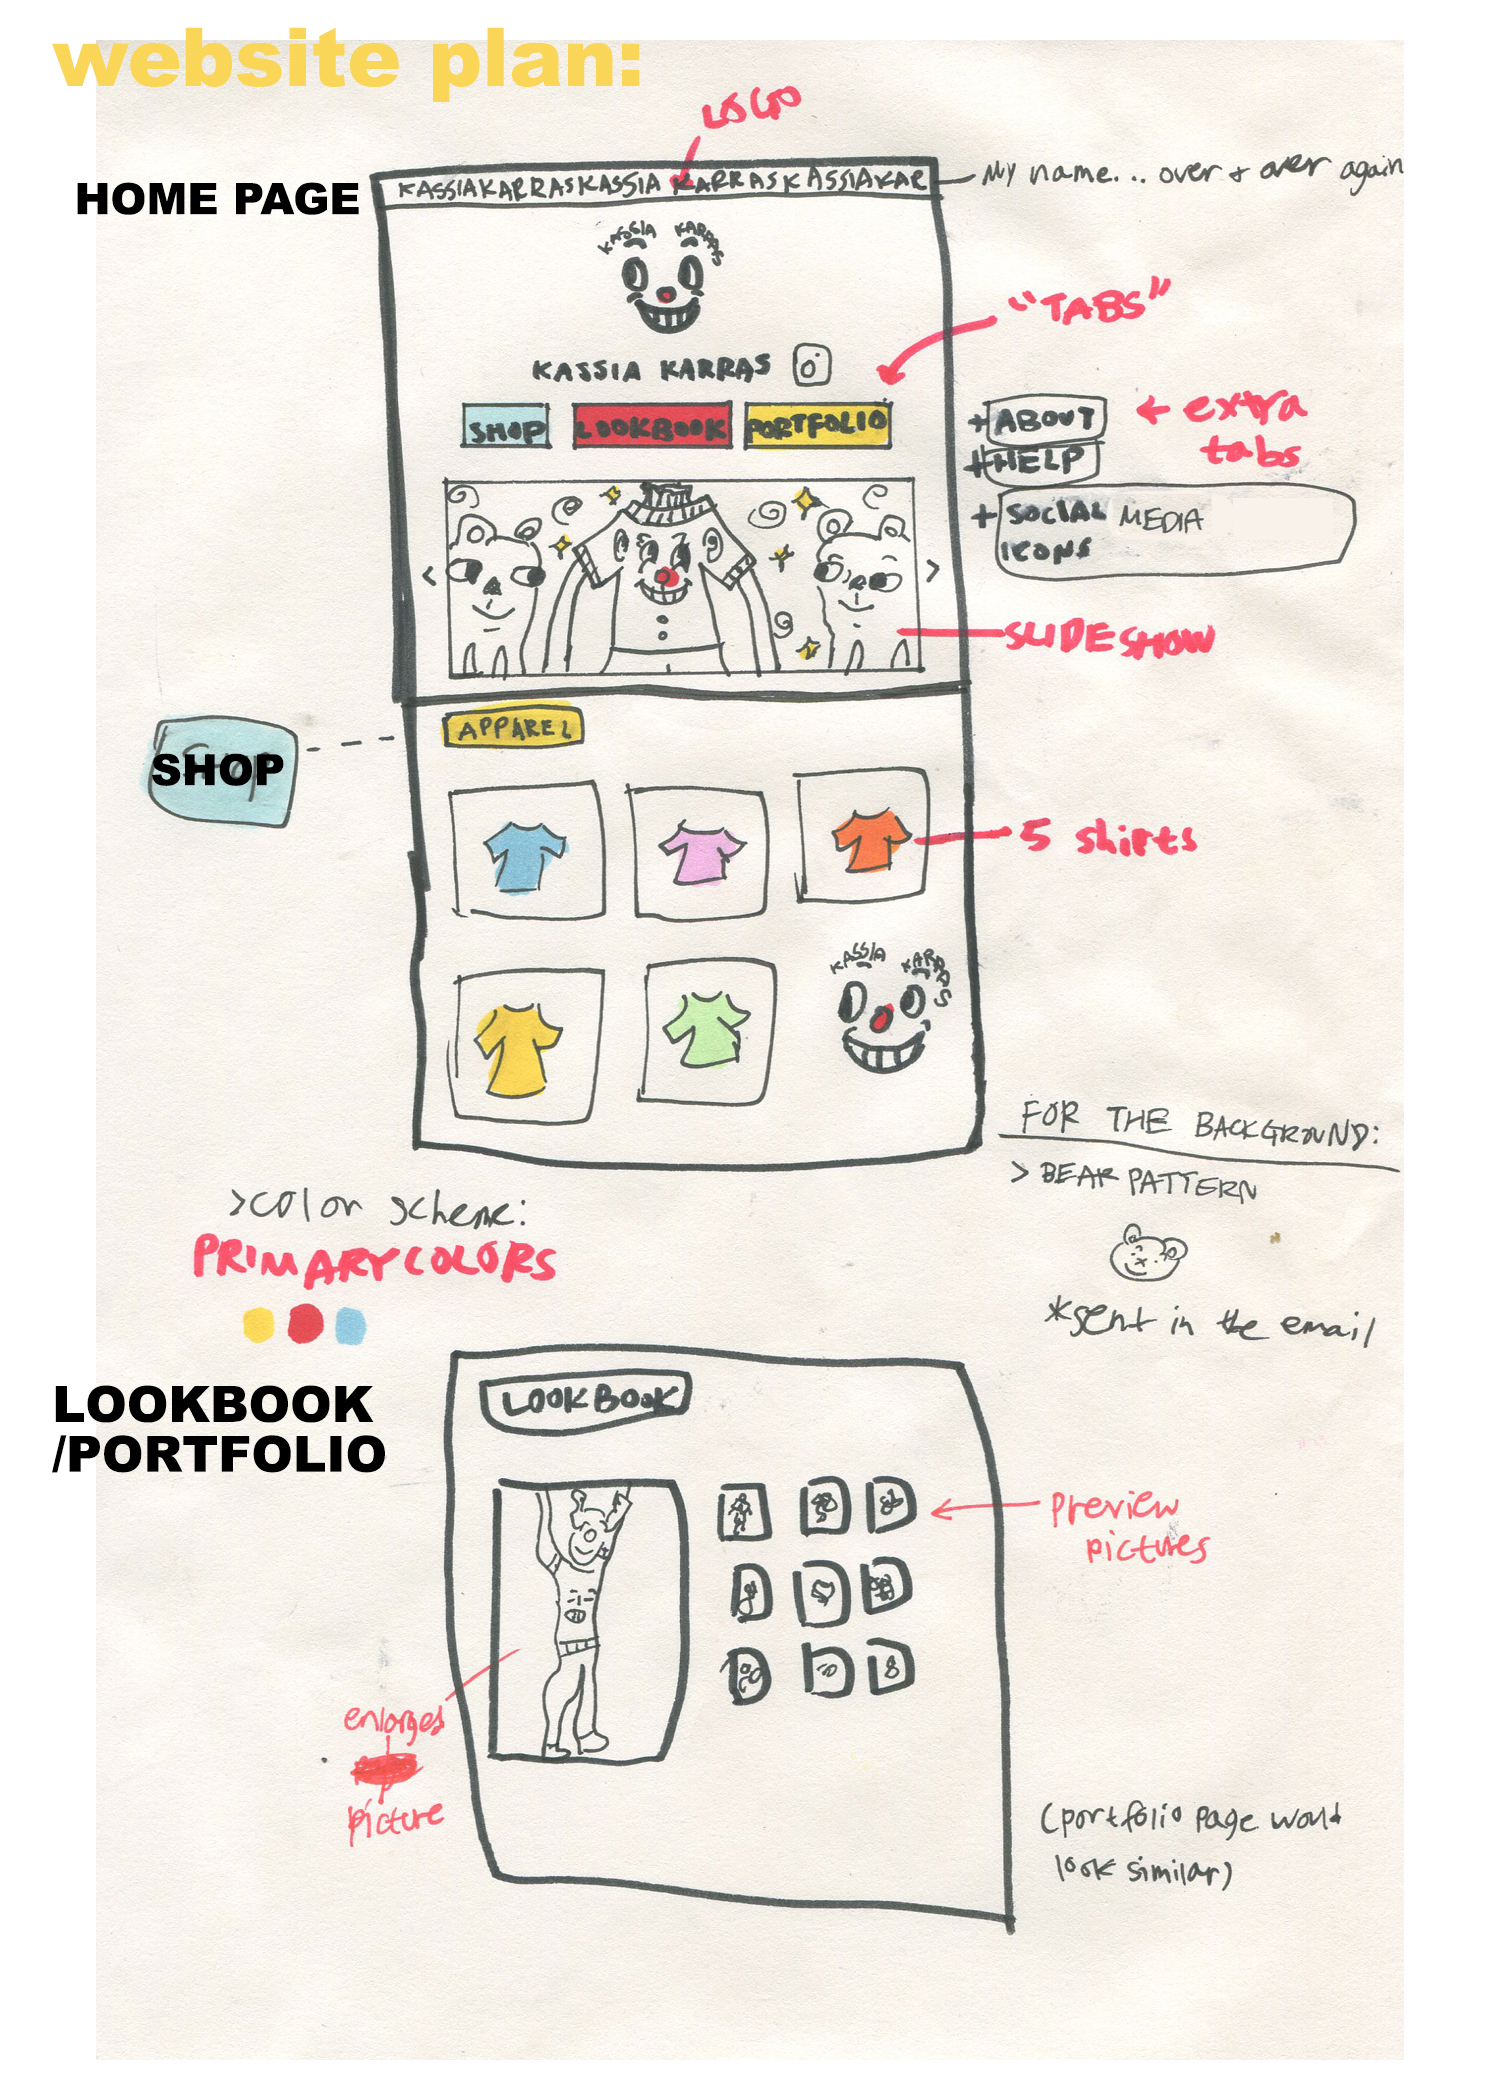 website plan:
LOGO
HOME PAGE
KASSIAKARRASKASSIA KARRASKASSIAKAR
My name... over + over again
KASSIA KARRAS
"TABS"
KASSIA KARRAS
SHOP LOOKBOOK PORTFOLIO
+ ABOUT
← extra tabs
+ HELP
+ SOCIAL MEDIA
ICONS
< >
SLIDESHOW
APPAREL
SHOP
5 shirts
KASSIA KARRAS
FOR THE BACKGROUND:
> BEAR PATTERN
*sent in the email
>color scheme:
PRIMARY COLORS
LOOKBOOK
/PORTFOLIO
LOOKBOOK
Preview
pictures
enlarges
picture
(portfolio page would
look similar)